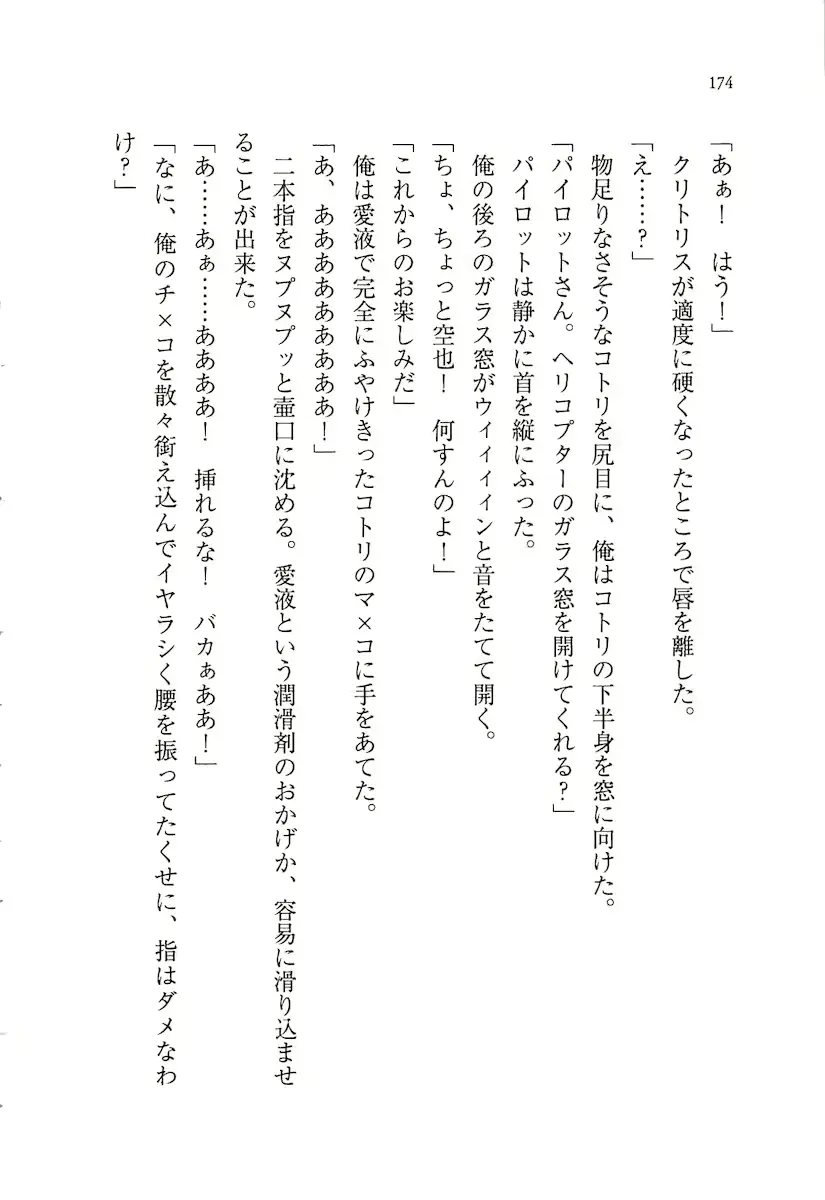 174
「あぁ！　はう！」
クリトリスが適度に硬くなったところで唇を離した。
「え……？」
物足りなさそうなコトリを尻目に、俺はコトリの下半身を窓に向けた。
「パイロットさん。ヘリコプターのガラス窓を開けてくれる？」
パイロットは静かに首を縦にふった。
俺の後ろのガラス窓がウィィィィンと音をたてて開く。
「ちょ、ちょっと空也！　何すんのよ！」
「これからのお楽しみだ」
俺は愛液で完全にふやけきったコトリのマ×コに手をあてた。
「あ、ああああああああああ！」
二本指をヌプヌプッと壷口に沈める。愛液という潤滑剤のおかげか、容易に滑り込ませ
ることが出来た。
「あ……あぁ……ああああ！　挿れるな！　バカぁああ！」
「なに、俺のチ×コを散々銜え込んでイヤラシく腰を振ってたくせに、指はダメなわ
け？」